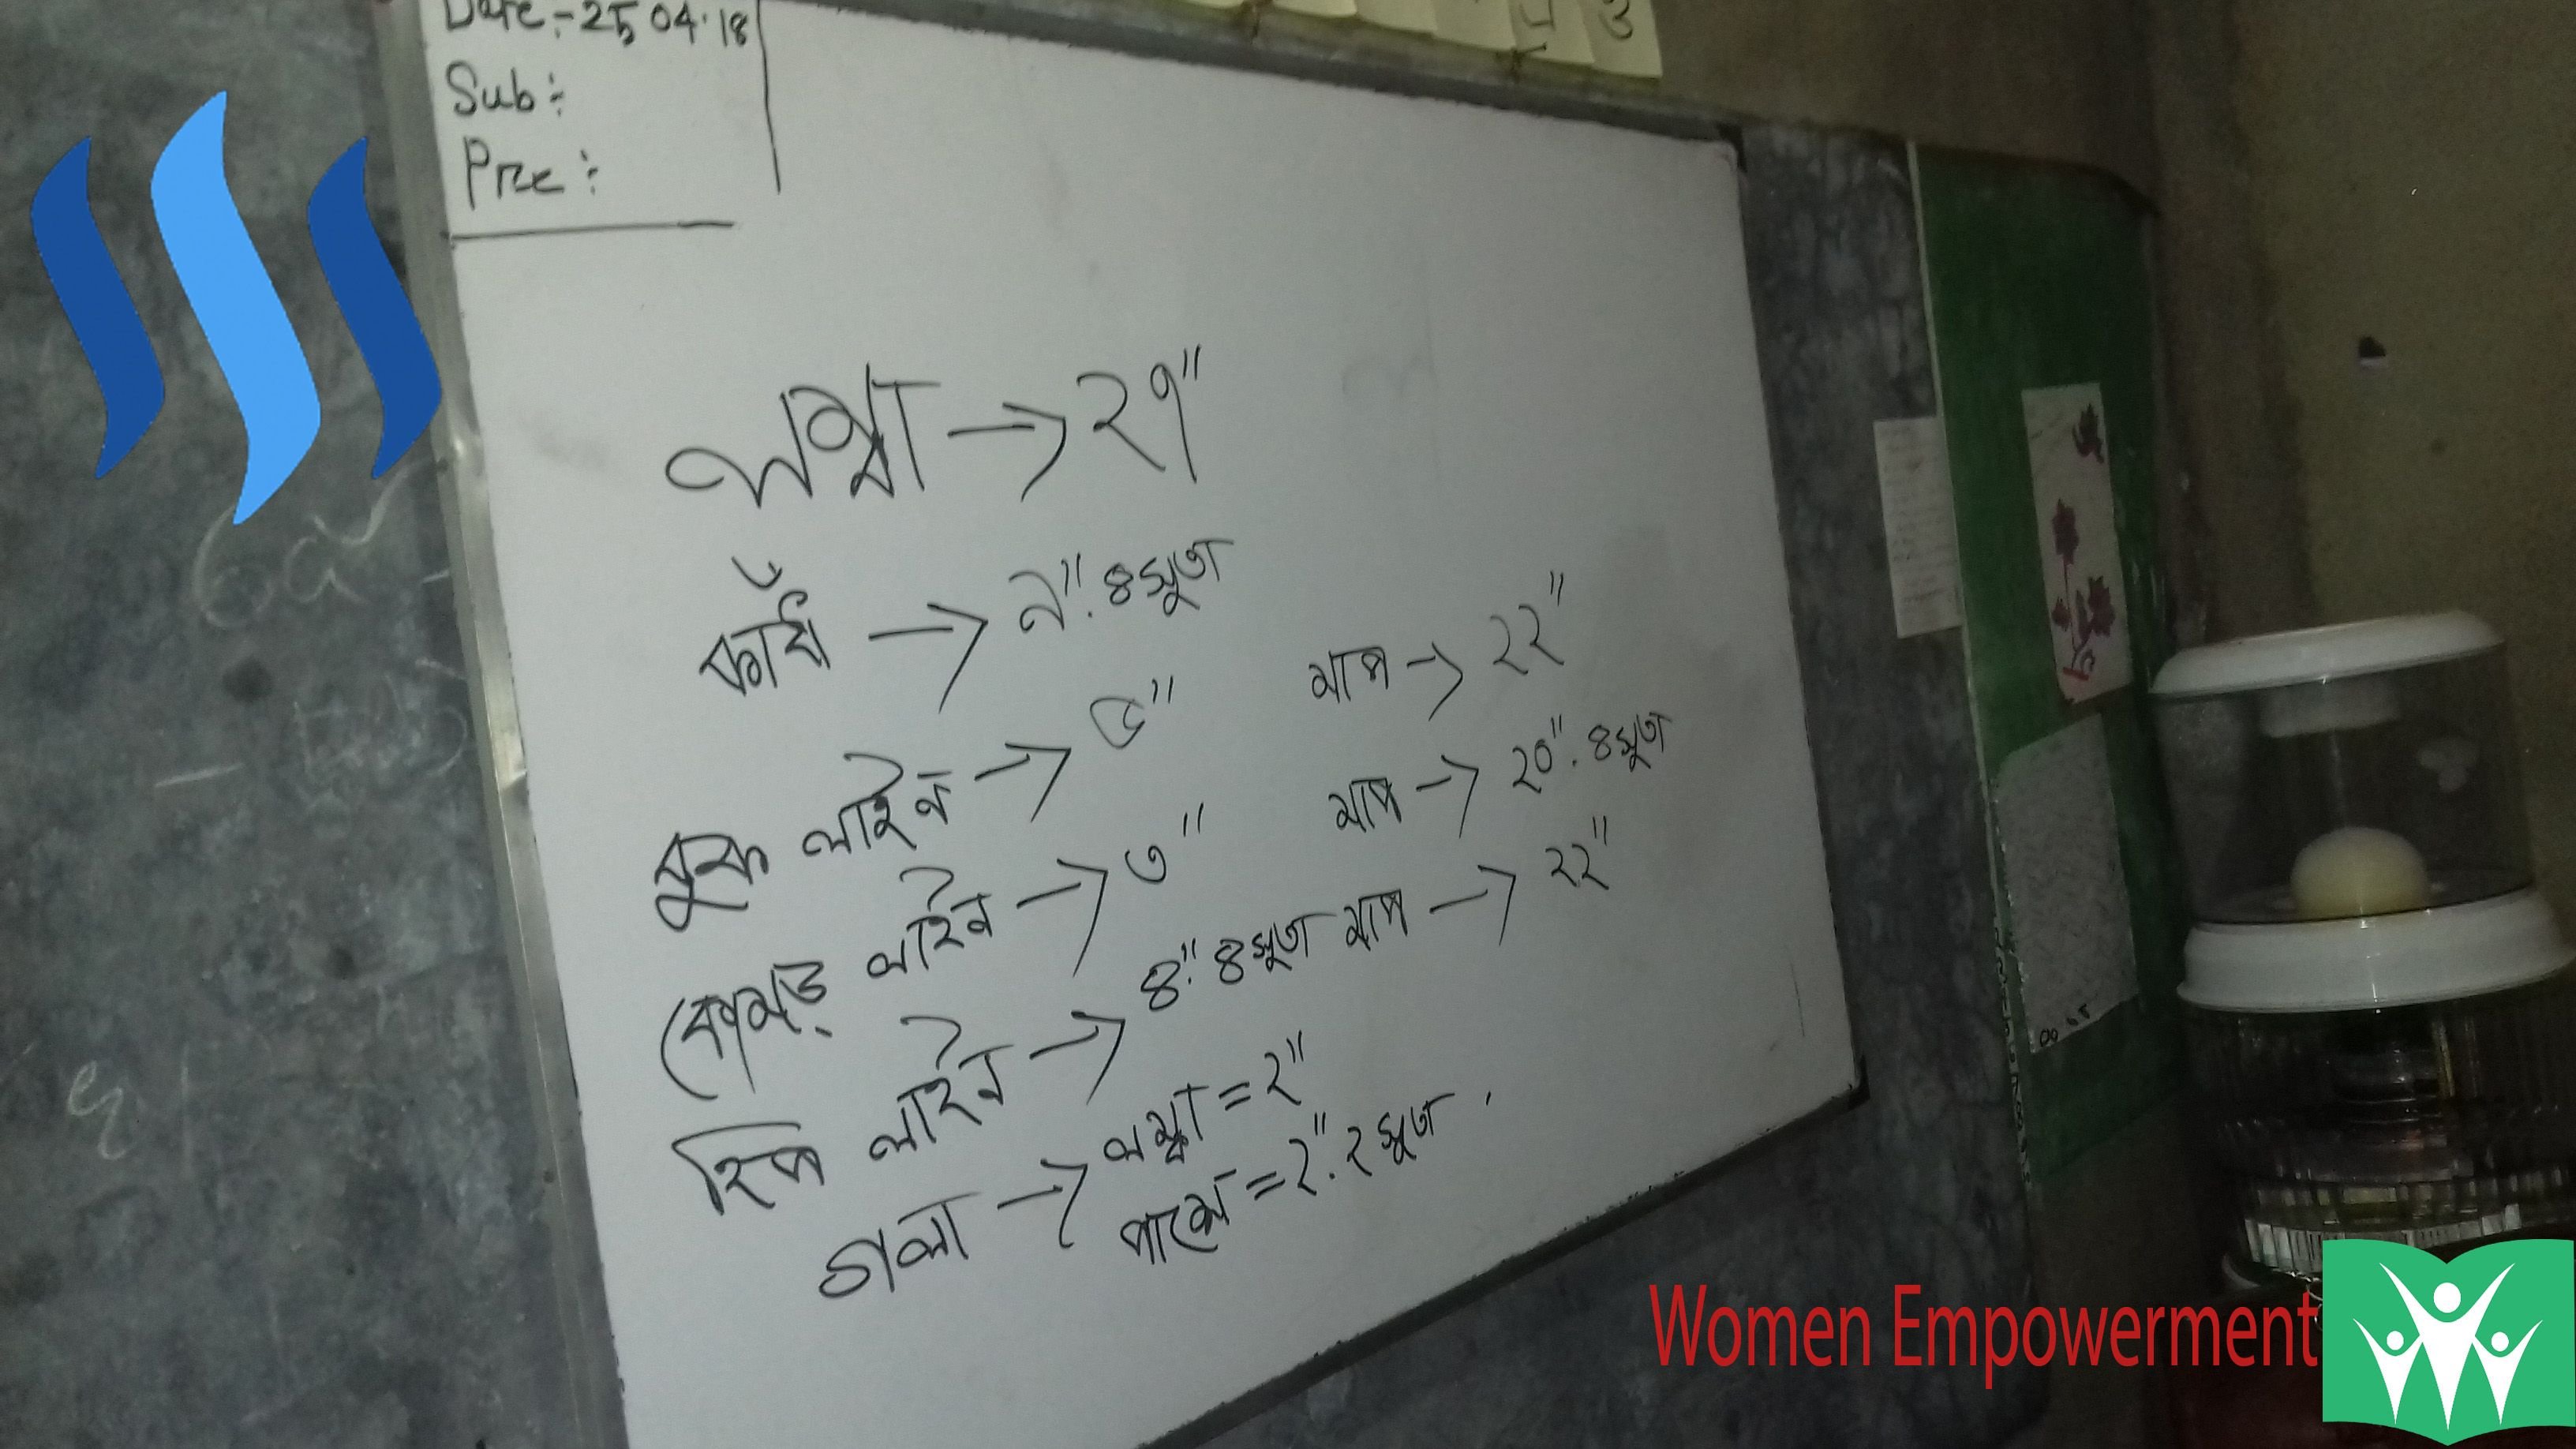 Date :- 25.04.18
Sub :
Pre :
লম্বা → ২৭"
কাঁধ → ৯". ৪সুতা
বুক লাইন → ৫" মাপ → ২২"
কোমড় লাইন → ৩" মাপ → ২০". ৪সুতা
হিপ লাইন → ৪". ৪সুতা মাপ → ২২"
গলা → লম্বা = ২"
পাশে = ২". ২ সুতা .
Women Empowerment